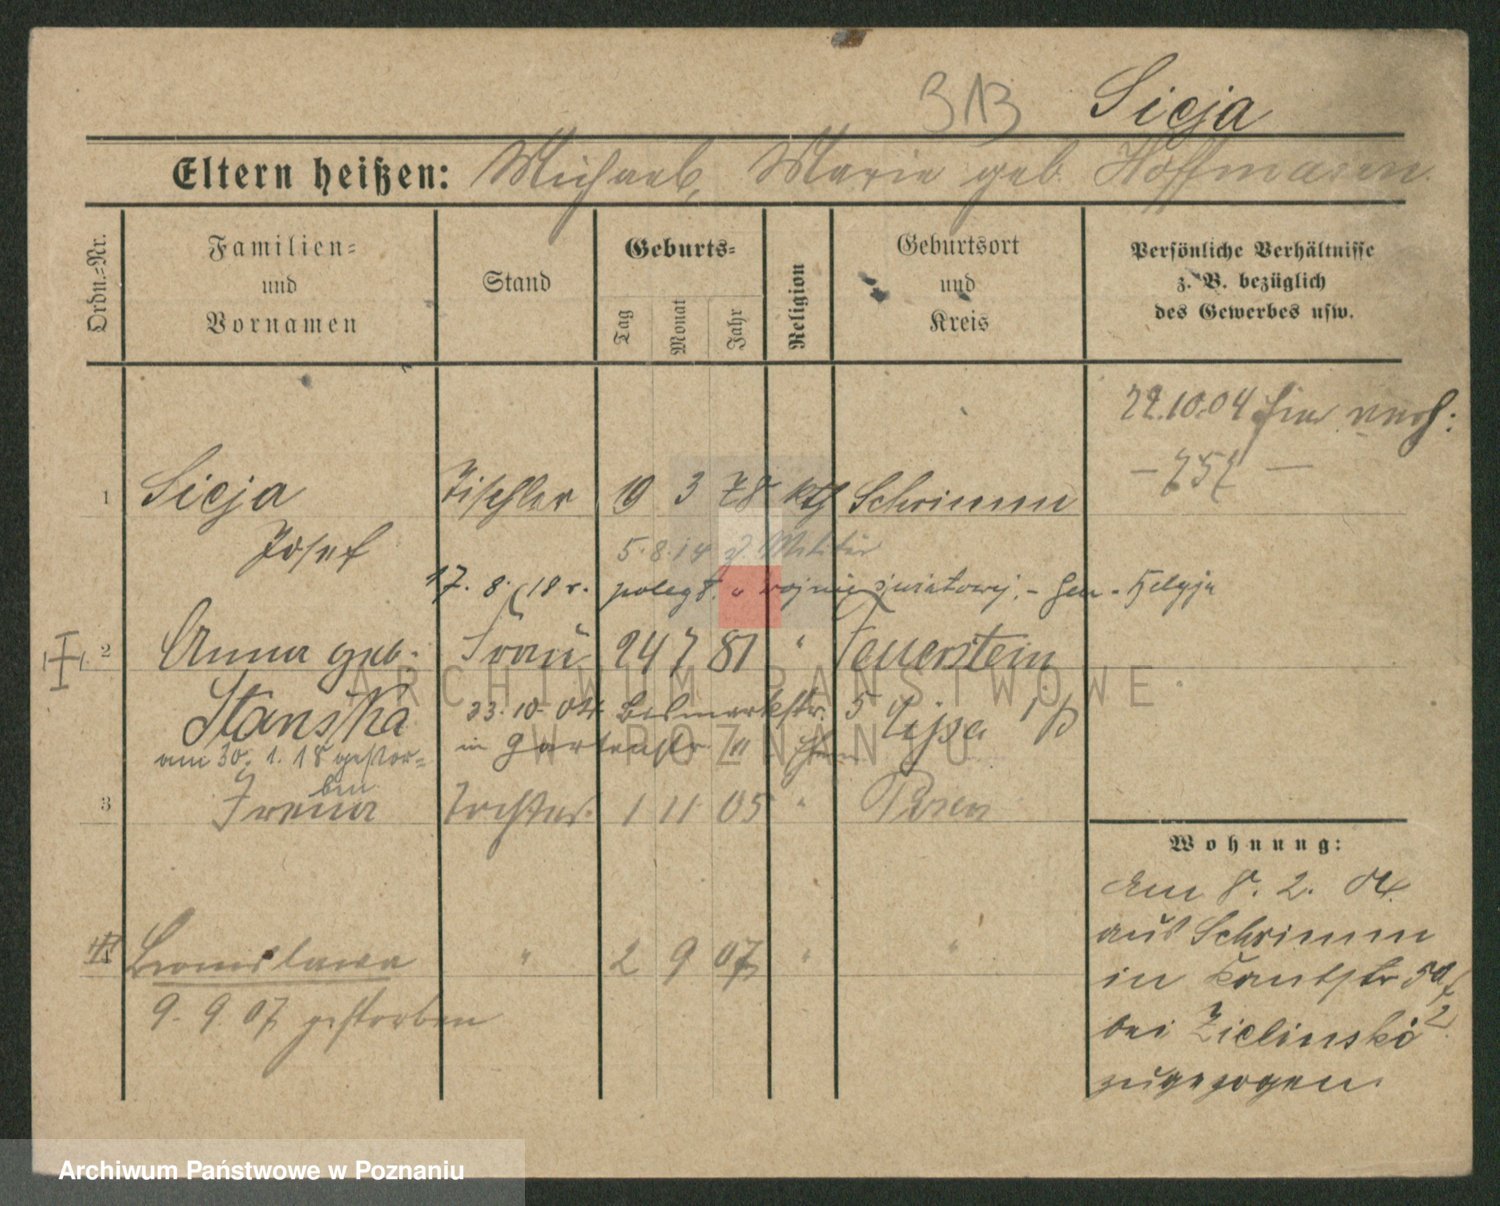 313 Sieja
Eltern heißen: Michael, Marie geb. Hoffmann
Ordn.=Nr.
Familien=
und
Vornamen
Stand
Geburts=
Tag
Monat
Jahr
Religion
Geburtsort
und
Kreis
Persönliche Verhältnisse
z. B. bezüglich
des Gewerbes usw.
22.10.04 hier verh:
1 Sieja Tischler 19 3 78 kth Schrimm
Josef
5.8.14 z. Militär
17. 8. 18 r. poległ w wojnie światowej.
2 Anna geb. Frau 24 7 81 " Feuerstein
Stanska
23.10.04 Bismarckstr. 5 Lissa
am 30.1.18 gestor=
ben
in Gartenstr.
3 Irena Tochter 1 11 05 " Posen
4 Bronislawa " 2 9 07 " "
9.9.07 gestorben
Wohnung:
Am 8. 2. 04.
aus Schrimm
in
bei Zielinski
zugezogen.
ARCHIWUM PAŃSTWOWE
W POZNANIU
Archiwum Państwowe w Poznaniu